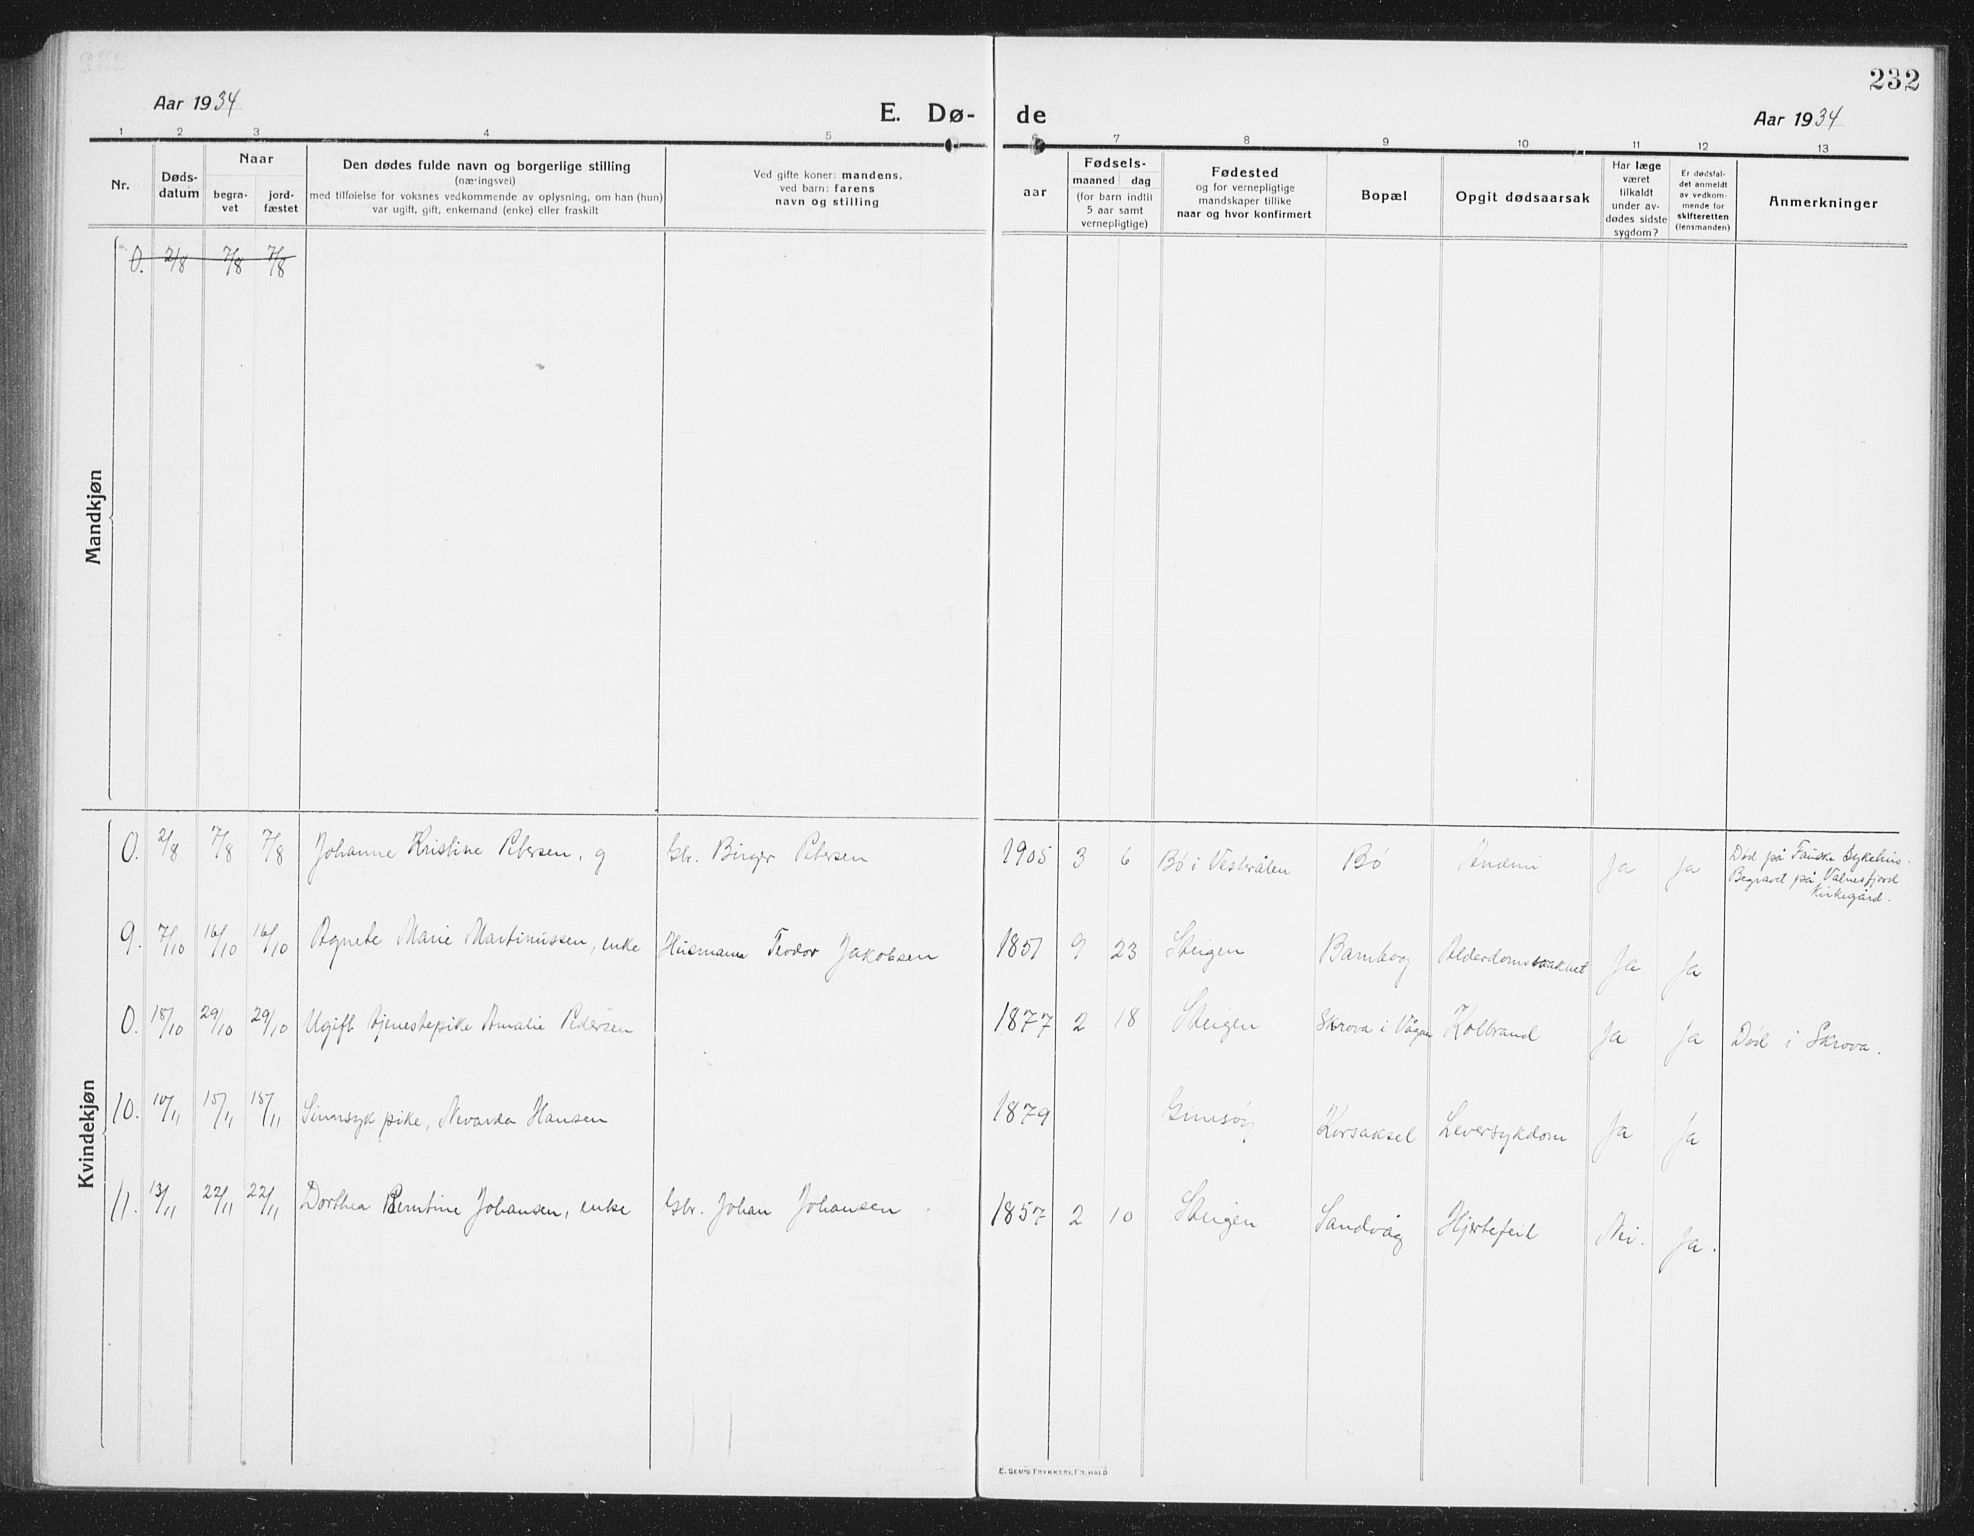 232
Aar 1934
E. Dø- de
Aar 1934
1 2 3 4 5 6 7 8 9 10 11 12 13
Nr.
Døds-
datum
Naar
begra-
vet
jord-
fæstet
Den dødes fulde navn og borgerlige stilling
(næringsvei)
med tilføielse for voksnes vedkommende av oplysning, om han (hun)
var ugift, gift, enkemand (enke) eller fraskilt
Ved gifte koner: mandens,
ved barn: farens
navn og stilling
Fødsels-
aar
maaned dag
(for barn indtil
5 aar samt
vernepligtige)
Fødested
og for vernepligtige
mandskaper tillike
naar og hvor konfirmert
Bopæl
Opgit dødsaarsak
Har læge
været
tilkaldt
under av-
dødes sidste
sygdom?
Er dødsfal-
det anmeldt
av vedkom-
mende for
skifteretten
(lensmanden)
Anmerkninger
Mandkjøn
0. 2/8 7/8 7/8
Kvindekjøn
0. 2/8 7/8 7/8 Johanne Kristine Petersen, g Gbr. Birger Petersen 1905 3 6 Bø i Vesterålen Bø Anæmi Ja Ja Død på Fauske Sykehus.
Begravet på Valnesfjord
Kirkegård.
9. 7/10 16/10 16/10 Agnete Marie Martinussen, enke Husmann Teodor Jakobsen 1851 9 23 Steigen Bambog Alderdomssvakhet Ja Ja
0. 18/10 29/10 29/10 Ugift tjenestepike Amalie Pedersen 1877 2 18 Steigen Skrova i Vågan Kolbrand Ja Ja Død i Skrova.
10. 10/11 15/11 15/11 Sinnsyk pike, Nevarda Hansen 1879 Gimsøy Korsaksel Leversykdom Ja Ja
11. 13/11 22/11 22/11 Dorthea Berntine Johansen, enke Gbr. Johan Johansen 1857 2 10 Steigen Sandvåg Hjertefeil Nei. Ja.
E. SEM'S TRYKKERI, FR.HALD